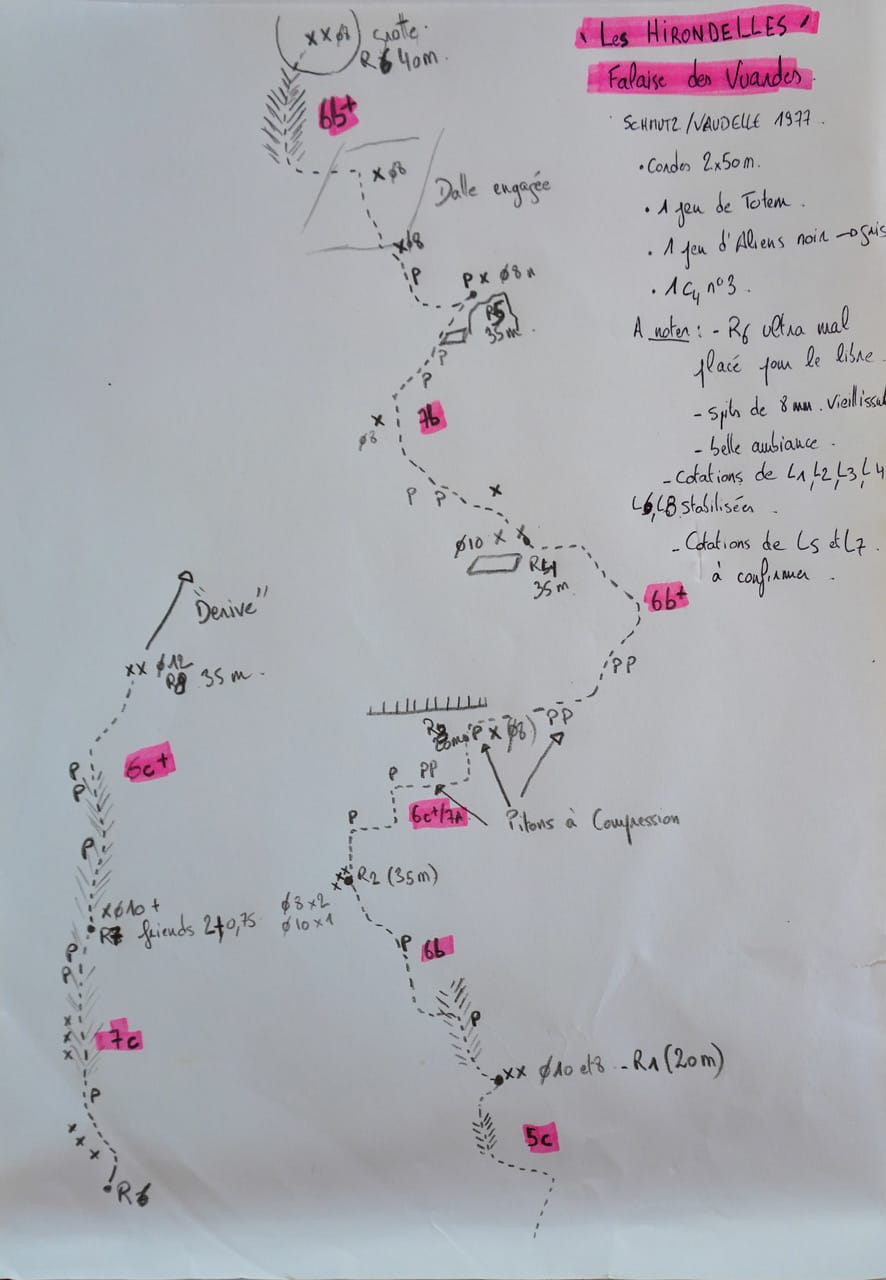 "Les HIRONDELLES"
Falaise des Vuardes.
SCHMUTZ/VAUDELLE 1977.
• Cordes 2x50m.
• 1 jeu de Totem.
• 1 jeu d'Aliens noir → gris
• 1 C4 n°3.
A noter : - R6 ultra mal
placé pour le libre.
- spits de 8 mm. vieillissa
- belle ambiance.
- Cotations de L1, L2, L3, L4
L6, L8 stabilisées.
- Cotations de L5 et L7.
à confirmer.
XX ø8 grotte.
R6 40m.
6b+
X ø8
Dalle engagée
X ø8
P
P X ø8
R5
35m.
P
P
7b
X
ø8
P P X
ø10 X X
R4
35m.
6b+
PP
PP
R3
P X (ø8)
P PP
6c+/7A
Pitons à Compression
P
XX
X R2 (35m)
ø8x2
ø10x1
P
6b
P
XX ø10 et 8 - R1 (20m)
5c
"Derive"
XX ø12
R8 35m.
6c+
P
P
P
X ø10 +
R7 friends 2+0,75
P
P
X
X
X
7c
P
X
X
X
R6